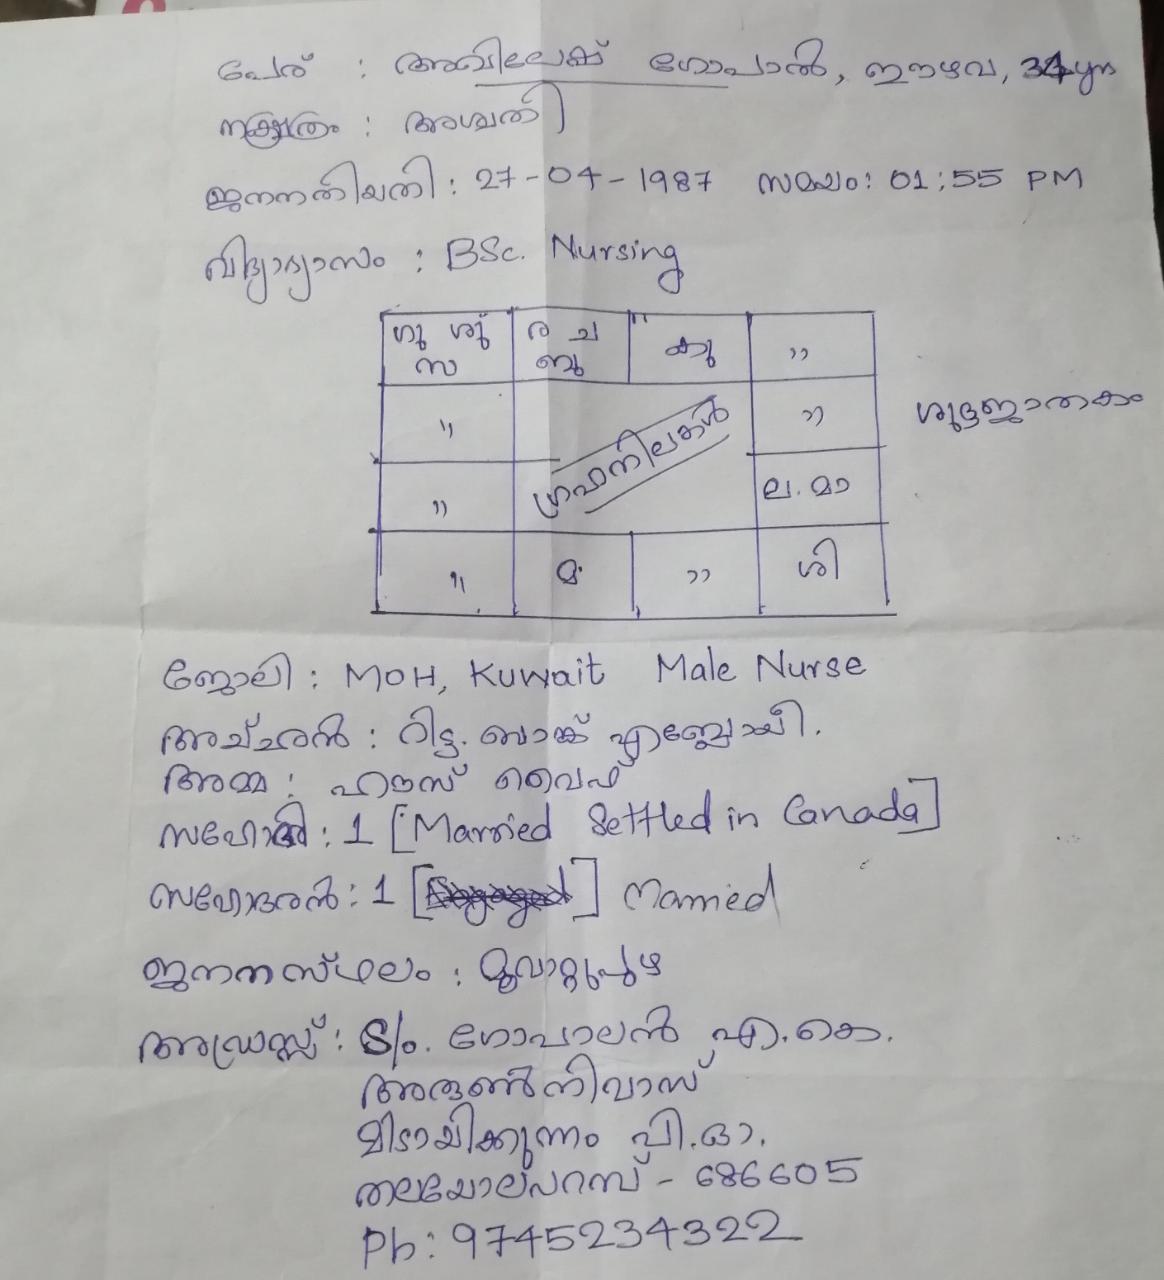 പേര് : അഖിലേഷ് ഗോപാൽ, ഈഴവ, 34yrs
നക്ഷത്രം : അശ്വതി
ജനനതിയതി : 27-04-1987 സമയം: 01:55 PM
വിദ്യാഭ്യാസം : BSc. Nursing
ഗു ശു ര ച " കു "
സ ബു
" ഗ്രഹനിലകൾ " ശുദ്ധജാതകം
" ല.മാ
" മ. " ശി
ജോലി : MOH, Kuwait Male Nurse
അച്ഛൻ : റിട്ട. ബാങ്ക് എംബ്ലോയി.
അമ്മ : ഹൗസ് വൈഫ്
സഹോദരി : 1 [Married Settled in Canada]
സഹോദരൻ : 1 [ ] Married
ജനനസ്ഥലം : മൂവാറ്റുപുഴ
അഡ്രസ്സ് : S/o. ഗോപാലൻ എ.കെ.
അരുൺനിവാസ്
മിടായിക്കുന്നം പി.ഓ.
തലയോലപറമ്പ് - 686605
Ph: 9745234322